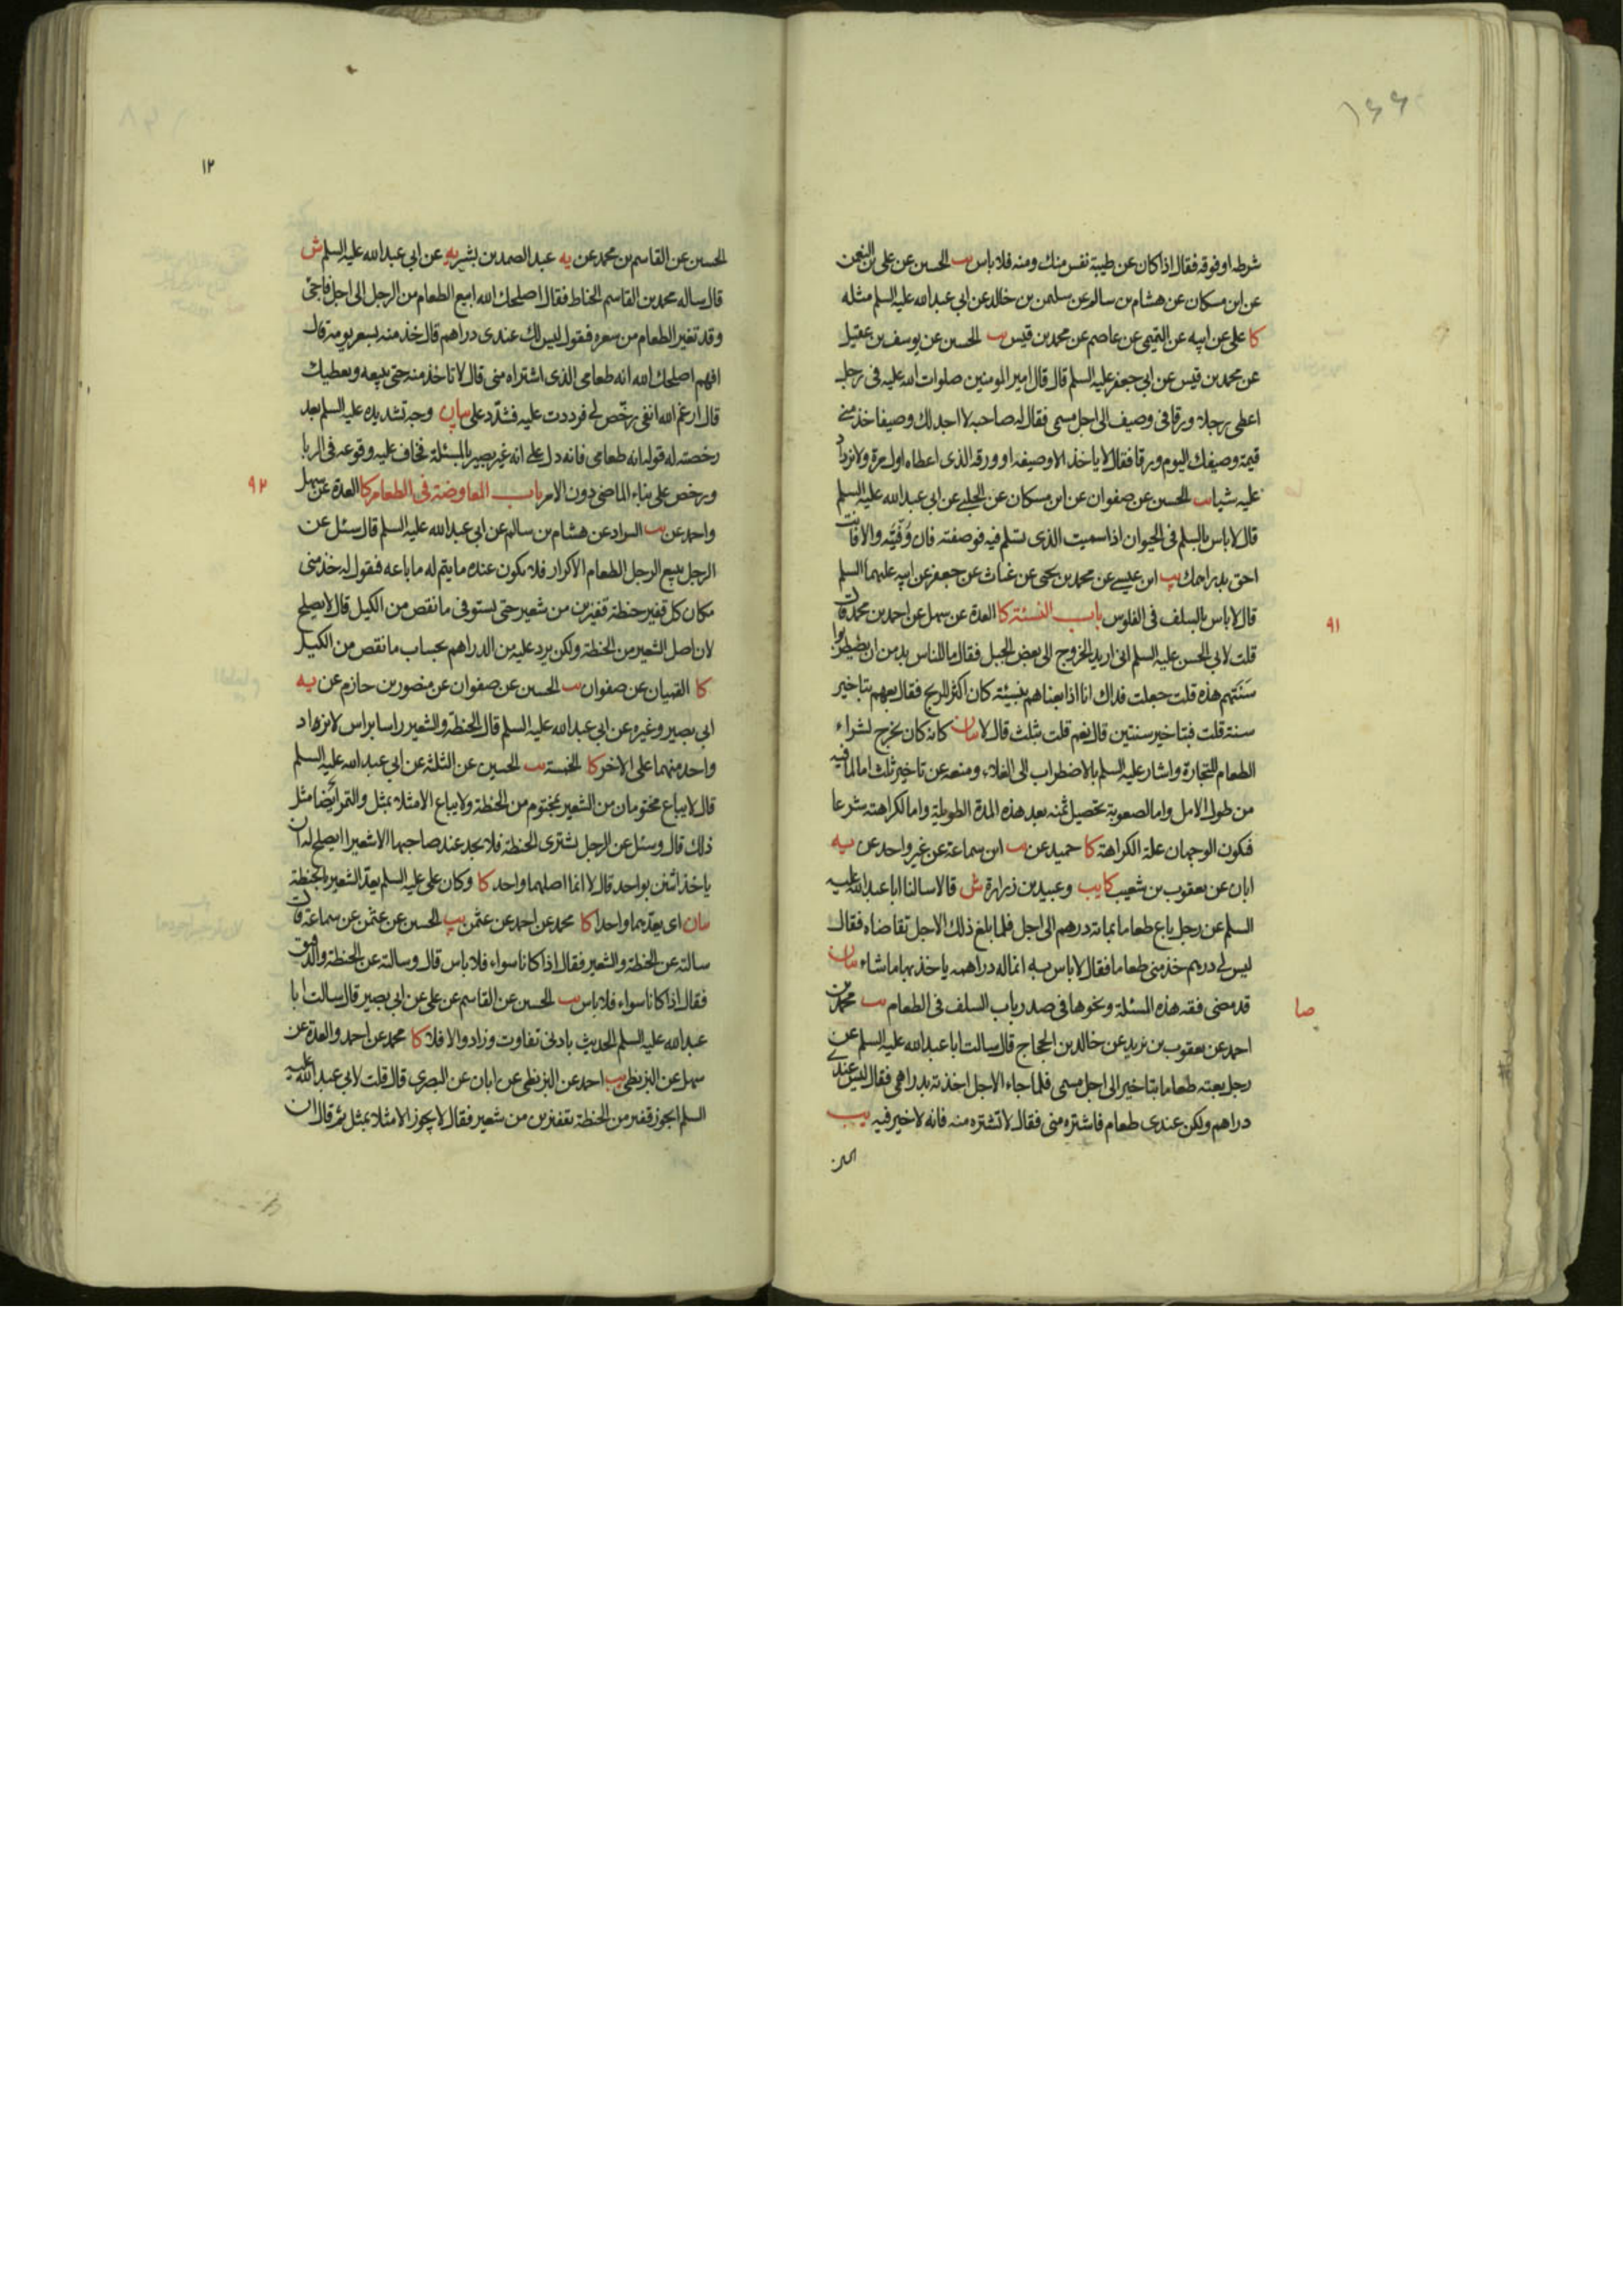 ١٦٦
شرطه او فوقه فقال اذا كان عن طيبة نفس منك ومنه فلا باس يب الحسين عن على بن النعمن
عن ابن مسكان عن هشام بن سالم عن سليمن بن خالد عن ابى عبد الله عليه السلم مثله
كا على عن ابيه عن التميمى عن عاصم عن محمد بن قيس يب الحسين عن يوسف بن عقيل
عن محمد بن قيس عن ابى جعفر عليه السلم قال قال امير المومنين صلوات الله عليه فى رجل
اعطى رجلا ورقا فى وصيف الى اجل مسمى فقال له صاحبه لا اجد لك وصيفا خذ منى
قيمة وصيفك اليوم ورقا فقال لا ياخذ الا وصيفه او ورقه الذى اعطاه اول مرة ولا يزداد
عليه شيا يب الحسين عن صفوان عن ابن مسكان عن الحلبى عن ابى عبد الله عليه السلم
قال لا باس بالسلم فى الحيوان اذا سميت الذى تسلم فيه فوصفته فان وُفِّيتَه والا فانت
احق بدراهمك يب ابن عيسى عن محمد بن يحيى عن غياث عن جعفر عن ابيه عليهما السلم
قال لا باس بالسلف فى الفلوس باب النسئة كا العدة عن سهل عن احمد بن محمد قال
٩١
قلت لابى الحسن عليه السلم انى اريد الخروج الى بعض الجبل فقال ما للناس بد من ان يضطربوا
سَنَتَهم هذه قلت جعلت فداك انا اذا بعناهم بنسيئة كان اكثر للربح فقال بعهم بتاخير
سنة قلت فبتاخير سنتين قال نعم قلت بثلث قال لا بيان كانه كان يخرج لشراء
الطعام للتجارة واشار عليه السلم بالاضطراب الى الغلاء ومنعه عن تاخير ثلث اما لما فيه
من طول الامل واما لصعوبة تحصيل ثمنه بعد هذه المدة الطويلة واما لكراهته شرعا
فيكون الوجهان علة الكراهة كا حميد عن يب ابن سماعة عن غير واحد عن يه
ابان عن يعقوب بن شعيب كا يب وعبيد بن زرارة ش قالا سالنا ابا عبد الله عليه
السلم عن رجل باع طعاما بماية درهم الى اجل فلما بلغ ذلك الاجل تقاضاه فقال
ليس لى درهم خذ منى طعاما فقال لا باس به انما له دراهمه ياخذ بها ما شاء بيان
قد مضى فقه هذه المسئلة ونحوها فى صدر باب السلف فى الطعام يب محمد بن
صا
احمد عن يعقوب بن يزيد عن خالد بن الحجاج قال سالت ابا عبد الله عليه السلم عن
رجل بعته طعاما بتاخير الى اجل مسمى فلما جاء الاجل اخذته بدراهمى فقال ليس عندى
دراهم ولكن عندى طعام فاشتره منى فقال لا تشتره منه فانه لا خير فيه يب
الحسين
١٢
الحسين عن القاسم بن محمد عن يه عبد الصمد بن بشير يه عن ابى عبد الله عليه السلم ش
قال ساله محمد بن القاسم الحناط فقال اصلحك الله ابيع الطعام من الرجل الى اجل فاجئ
وقد تغير الطعام من سعره فيقول ليس لك عندى دراهم قال خذ منه بسعر يومه قال
افهم اصلحك الله انه طعامى الذى اشتراه منى قال لا تاخذ منه حتى يبيعه ويعطيك
قال ارغم الله انفى رخّص لى فرددت عليه فشدّد على بيان وجه تشديده عليه السلم بعد
رخصته له قوله انه طعامى فانه دل على انه غير بصير بالمسئلة فخاف عليه وقوعه فى الربا
ورخص على بناء الماضى دون الامر باب المعاوضة فى الطعام كا العدة عن سهل
٩٢
واحمد عن يب السراد عن هشام بن سالم عن ابى عبد الله عليه السلم قال سئل عن
الرجل يبيع الرجل الطعام الاكرار فلا يكون عنده ما يتم له ما باعه فيقول له خذ منى
مكان كل قفيز حنطة قفيزين من شعير حتى تستوفى ما نقص من الكيل قال لا يصلح
لان اصل الشعير من الحنطة ولكن يرد عليه من الدراهم بحساب ما نقص من الكيل
كا القميان عن صفوان يب الحسين عن صفوان عن منصور بن حازم عن يه
ابى بصير وغيره عن ابى عبد الله عليه السلم قال الحنطة والشعير راسا براس لا يزداد
واحد منهما على الاخر كا الخمسة يب الحسين عن الثلثة عن ابى عبد الله عليه السلم
قال لا يباع مختومان من الشعير بمختوم من الحنطة ولا يباع الا مثلا بمثل والتمر ايضا مثل
ذلك قال وسئل عن الرجل يشترى الحنطة فلا يجد عند صاحبها الا شعيرا ايصلح له ان
ياخذ اثنين بواحد قال لا انما اصلهما واحد كا وكان على عليه السلم يعدّ الشعير بالحنطة
بيان اى يعدّهما واحدا كا محمد عن احمد عن عثمن يب الحسين عن عثمن عن سماعة قال
سالته عن الحنطة والشعير فقال اذا كانا سواء فلا باس قال وسالته عن الحنطة والدقيق
فقال اذا كانا سواء فلا باس يب الحسين عن القاسم عن على عن ابى بصير قال سالت ابا
عبد الله عليه السلم الحديث بادنى تفاوت وزاد والا فلا كا محمد عن احمد والعدة عن
سهل عن البزنطى يب احمد عن البزنطى عن ابان عن البصرى قال قلت لابى عبد الله عليه
السلم ايجوز قفيز من الحنطة بقفيزين من شعير فقال لا يجوز الا مثلا بمثل ثم قال ان